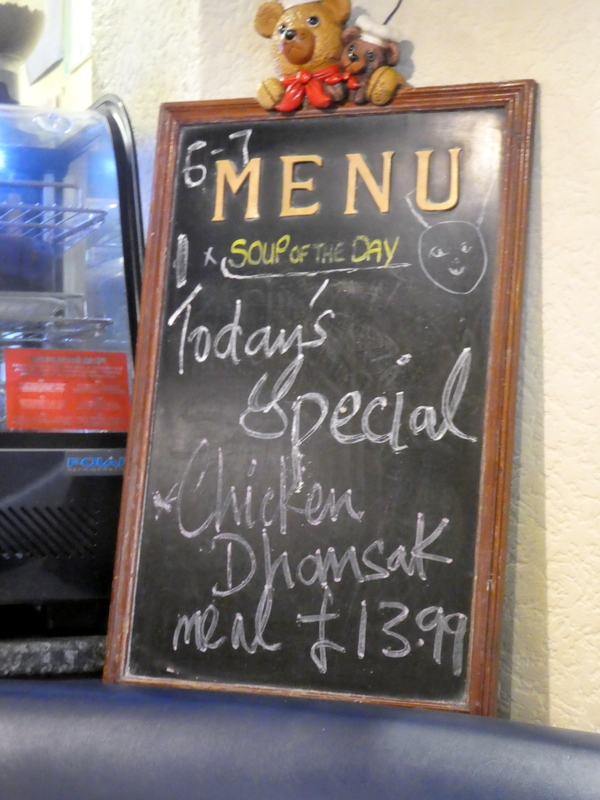 5-7
MENU
1 x SOUP OF THE DAY
Today's
Special
Chicken
Dhansak
meal £13.99
POLAR